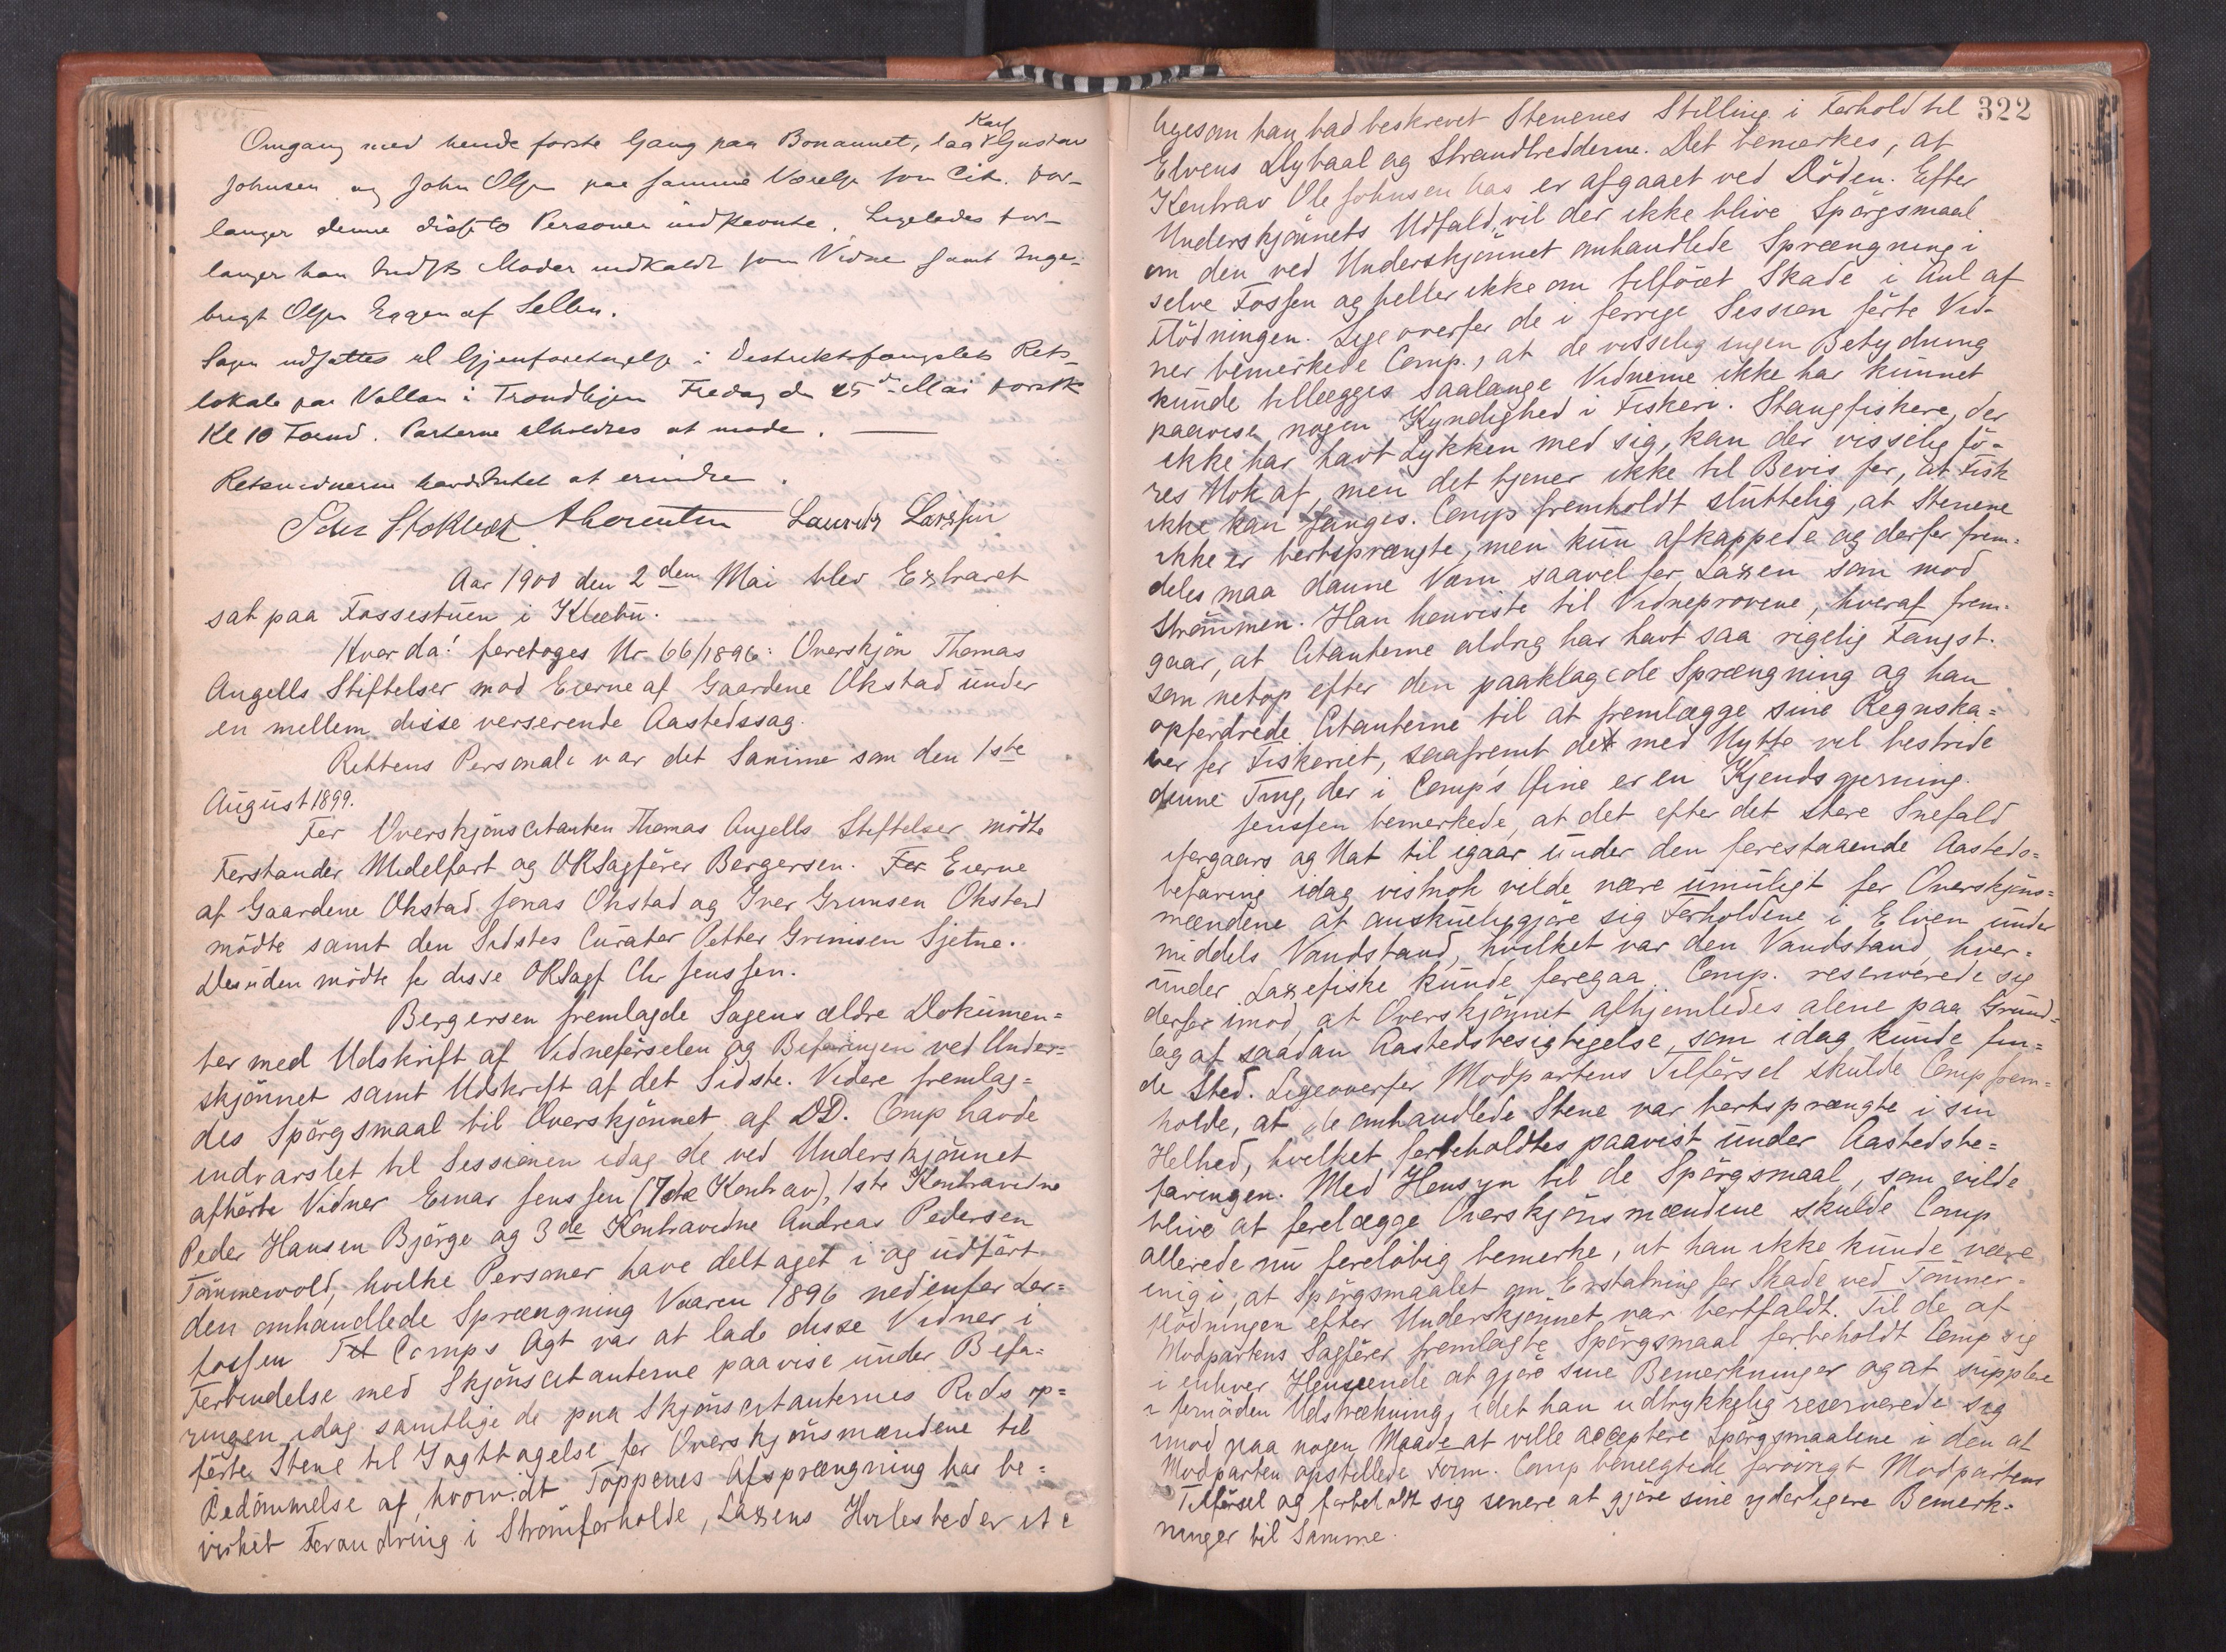 Omgang med hende første Gang paa Bonannet, laa Karl Gustav
Johnsen og John Olsen paa samme Værelse som Cit. For-
langer denne disse to Personer indkaldte. Ligeledes for-
langer han Moder indkaldt som Vidne samt Inge-
brigt Olsen Eggen af Selbu.
Sagen udsattes til Gjenforetagelse i Distriktsfængslets Rets-
lokale paa Vollan i Trondhjem Fredag d 25de Mai førstk
Kl 10 Formd. Parterne tilholdtes at møde.
Retsvidnerne havde Intet at erindre.
Lauritz Larssen
Aar 1900 den 2den Mai blev Extraret
sat paa Fossestuen i Klæbu.
Hvor da! foretoges Nr 66/1896: Overskjön Thomas
Angells Stiftelser mod Eierne af Gaardene Okstad under
en mellem disse verserende Aastedssag.
Rettens Personale var det Samme som den 1ste
August 1899.
For Overskjönscitanten Thomas Angells Stiftelser mödte
Forstander Midelfart og ORSagförer Bergersen. For Eierne
af Gaardene Okstad Jonas Okstad og Iver Grimsen Okstad
mödte samt den Sidstes Curator Petter Grimsen Sjetne.
Desuden mödte for disse ORSagf Chr Jenssen.
Bergersen fremlagde Sagens ældre Dokumen=
ter med Udskrift af Vidneförselen og Befaringen ved Under=
skjönnet samt Udskrift af det Sidste. Videre fremlag=
des Spörgsmaal til Overskjönnet af DD. Comp havde
indvarslet til Sessionen idag de ved Underskjönnet
afhörte Vidner Einar Jenssen (7de Kontrav), 1ste Kontravidne
Peder Hansen Björge og 3de Kontravidne Andreas Pedersen
Tömmervold, hvilke Personer have deltaget i og udfört
den omhandlede Sprængning Vaaren 1896 nedenfor Lar=
fossen Det Comps Agt var at lade disse Vidner i
Forbindelse med Skjönscitanterne paavise under Befa=
ringen idag samtlige de paa Skjönscitanternes Rids op=
förte Stene til Iagttagelse for Overskjönsmændene til
Bedömmelse af, hvorvidt Toppenes Afsprængning har be=
virket Forandring i Strömforholde, Laxens Hvilesteder etc
322
ligesom han bad beskrevet Stenenes Stilling i Forhold til
Elvens Dybaal og Strandbredderne. Det bemærkes, at
Kontrav Ole Johnsen Aas er afgaaet ved Döden. Efter
Underskjönnets Udfald, vil der ikke blive Spörgsmaal
om den ved Underskjönnet omhandlede Sprængning i
selve Fossen og heller ikke om tilföiet Skade i Anl af
Flödningen. Lige overfor de i forrige Session förte Vid-
ner bemerkede Comp., at de visselig ingen Betydning
kunde tillægges saalænge Vidnerne ikke har kunnet
paavise nogen Kyndighed i Fiskeri. Stangfiskere, der
ikke har havt Lykken med sig, kan der visselig fö-
res Nok af, men det tjener ikke til Bevis for, at Fisk
ikke kan fanges. Comp fremholdt sluttelig, at Stenene
ikke er bortsprængte, men kun afkappede og derfor frem=
deles maa danne Værn saavel for Laxen som mod
Strömmen. Han henviste til Vidneprovene, hvoraf frem-
gaar, at Citanterne aldrig har havt saa rigelig Fangst.
som netop efter den paaklagede Sprængning og han
opfordrede Citanterne til at fremlægge sine Regnska=
ber for Fiskeriet, saafremt det med Nytte vil bestride
denne Ting, der i Comp's Öine er en Kjendsgjerning.
Jenssen bemerkede, at det efter det store Snefald
iforgaars og Nat til igaar under den forestaaende Aasteds=
befaring idag vistnok vilde være umuligt for Overskjöns=
mændene at anskueliggjöre sig Forholdene i Elven under
middels Vandstand, hvilket var den Vandstand, hvor=
under Laxefiske kunde foregaa. Comp. reserverede sig
derfor imod, at Overskjönnet afhjemledes alene paa Grund=
lag af saadan Aastedsbesigtigelse, som idag kunde fin=
de Sted. Ligeoverfor Modpartens Tilförsel skulde Comp frem=
holde, at de omhandlede Stene var bortsprængte i sin
Helhed, hvilket forbeholdtes paavist under Aastedsbe=
faringen. Med Hensyn til de Spörgsmaal, som vilde
blive at forelægge Overskjönsmændene skulde Comp
allerede nu forelöbig bemerke, at han ikke kunde være
enig i, at Spörgsmaalet om Erstatning for Skade ved Tömmer-
flödningen efter Underskjönnet var bortfaldt. Til de af
Modpartens Sagförer fremlagte Spörgsmaal forbeholdt Comp sig
i enhver Henseende at gjöre sine Bemerkninger og at supplere
i fornöden Udstrækning, idet han udtrykkelig reserverede sig
imod paa nogen Maade at ville acceptere Spörgsmaalene i den af
Modparten opstillede Form. Comp benegtede forövrigt Modpartens
Tilförsel og forbeholdt sig senere at gjöre sine yderligere Bemerk-
ninger til Samme.